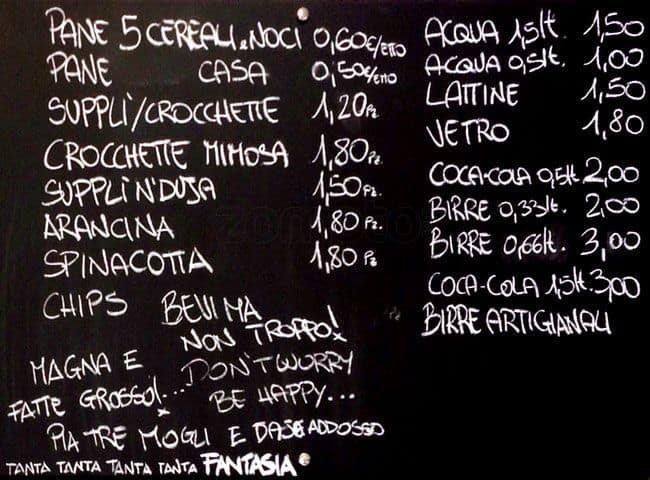 PANE 5 CEREALI e NOCI 0,60€/ETTO
PANE CASA 0,50€/ETTO
SUPPLÌ/CROCCHETTE 1,20 Pz
CROCCHETTE MIMOSA 1,80 Pz.
SUPPLÌ N'DUJA 1,50 Pz.
ARANCINA 1,80 Pz.
SPINACOTTA 1,80 Pz
CHIPS
BEVI MA
NON TROPPO!
MAGNA E
FATTE GROSSO!...
DON'T WORRY
BE HAPPY...
PIA TRE MOGLI E ADDOSSO
TANTA TANTA TANTA TANTA FANTASIA
ACQUA 1,5lt. 1,50
ACQUA 0,5lt. 1,00
LATTINE 1,50
VETRO 1,80
COCA-COLA 0,5lt. 2,00
BIRRE 0,33lt. 2,00
BIRRE 0,66lt. 3,00
COCA-COLA 1,5lt. 3,00
BIRRE ARTIGIANALI